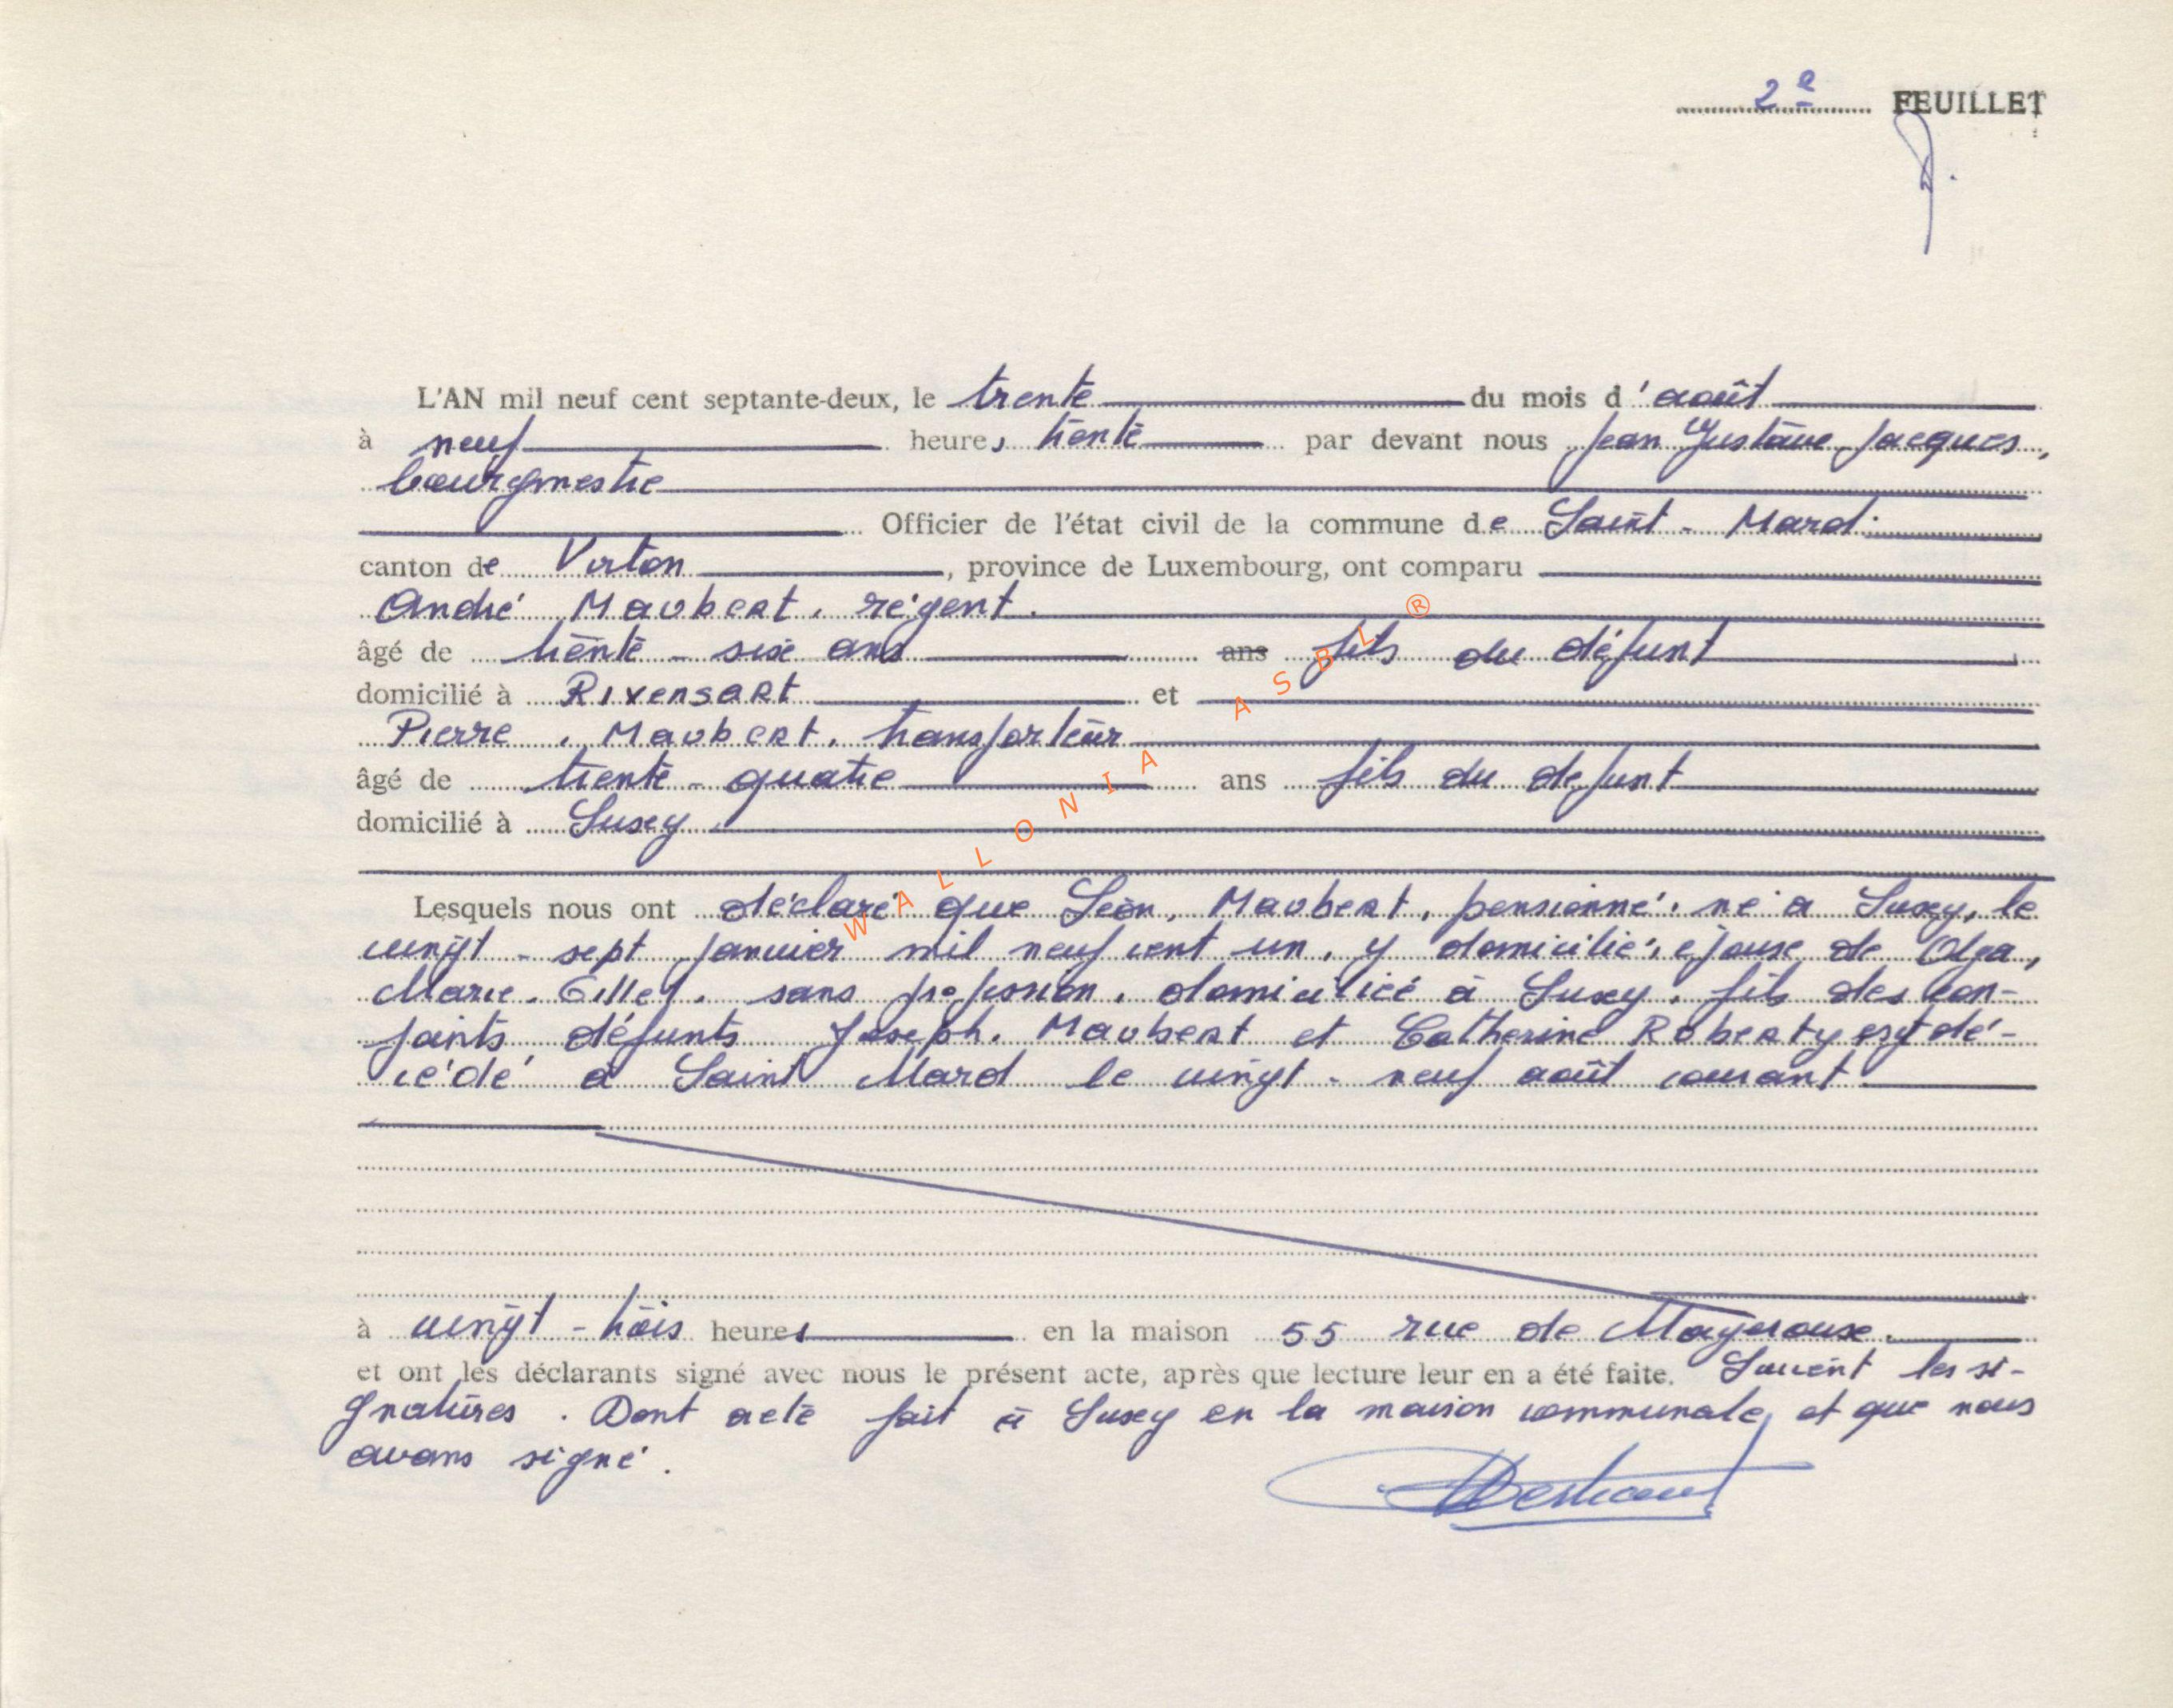 2e FEUILLET
L'AN mil neuf cent septante-deux, le trente du mois d'août
à neuf heures trente par devant nous Jean Gustave Jacques,
bourgmestre
Officier de l'état civil de la commune de Saint-Mard.
canton de Virton, province de Luxembourg, ont comparu
André Maubert, régent.
âgé de trente-six ans ans fils du défunt
domicilié à Rixensart et
Pierre, Maubert, transporteur
âgé de trente-quatre ans fils du defunt
domicilié à Suxy
Lesquels nous ont déclaré que Léon, Maubert, pensionné, né à Suxey, le
vingt-sept janvier mil neuf cent un, y domicilié, époux de Olga,
Marie, sans profession, domicilié à Suxey, fils des con-
joints défunts Joseph, Maubert et Catherine Roberty est dé-
cédé à Saint Mard le vingt-neuf août courant
à vingt-trois heures en la maison 55 rue de Mageroux.
et ont les déclarants signé avec nous le présent acte, après que lecture leur en a été faite. Suivent les si-
gnatures. Dont acte fait à Suxey en la maison communale, et que nous
avons signé.
WALLONIA ASBL ®